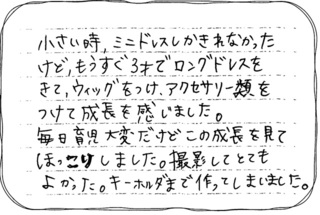 小さい時,ミニドレスしかきれなかった
けど,もうすぐ3才でロングドレスを
きて,ウィッグをつけ、アクセサリー類を
つけて成長を感じました。
毎日育児大変だけどこの成長を見て
ほっこりしました。撮影してとても
よかった。キーホルダまで作ってしまいました。